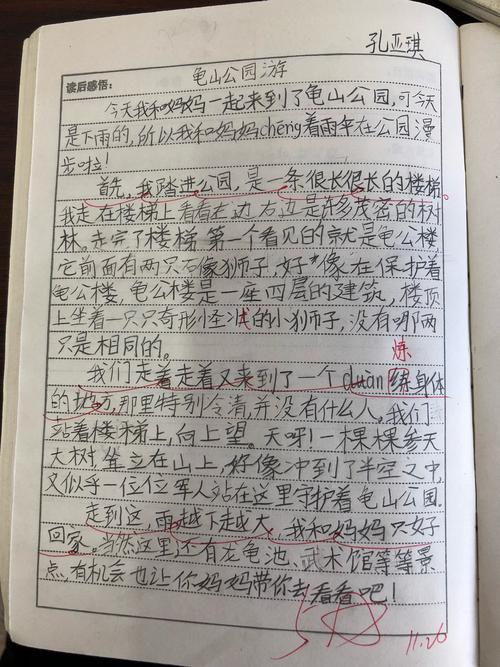 孔亚琪
读后感悟:
龟山公园游
今天我和妈妈一起来到了龟山公园,可今天
是下雨的,所以我和妈妈chēng着雨伞在公园漫
步啦!
首先,我踏进公园,是一条很长很长的楼梯。
我走在楼梯上看看左边右边是许多茂密的树
林。走完了楼梯 第一个看见的就是龟公楼
它前面有两只石像狮子,好像在保护着
龟公楼,龟公楼是一座四层的建筑,楼顶
上坐着一只只奇形怪状的小狮子,没有哪两
只是相同的。
炼
我们走着走着又来到了一个duàn练身体
的地方,那里特别冷清,并没有什么人。我们
站着楼梯上,向上望。天呀!一棵棵参天
大树,耸立在山上,好像冲到了半空中,
又似乎一位位军人站在这里守护着龟山公园.
走到这,雨越下越大,我和妈妈只好
回家。当然这里还有龟池、武术馆等等景
点,有机会也让你妈妈带你去看看吧!
11.26